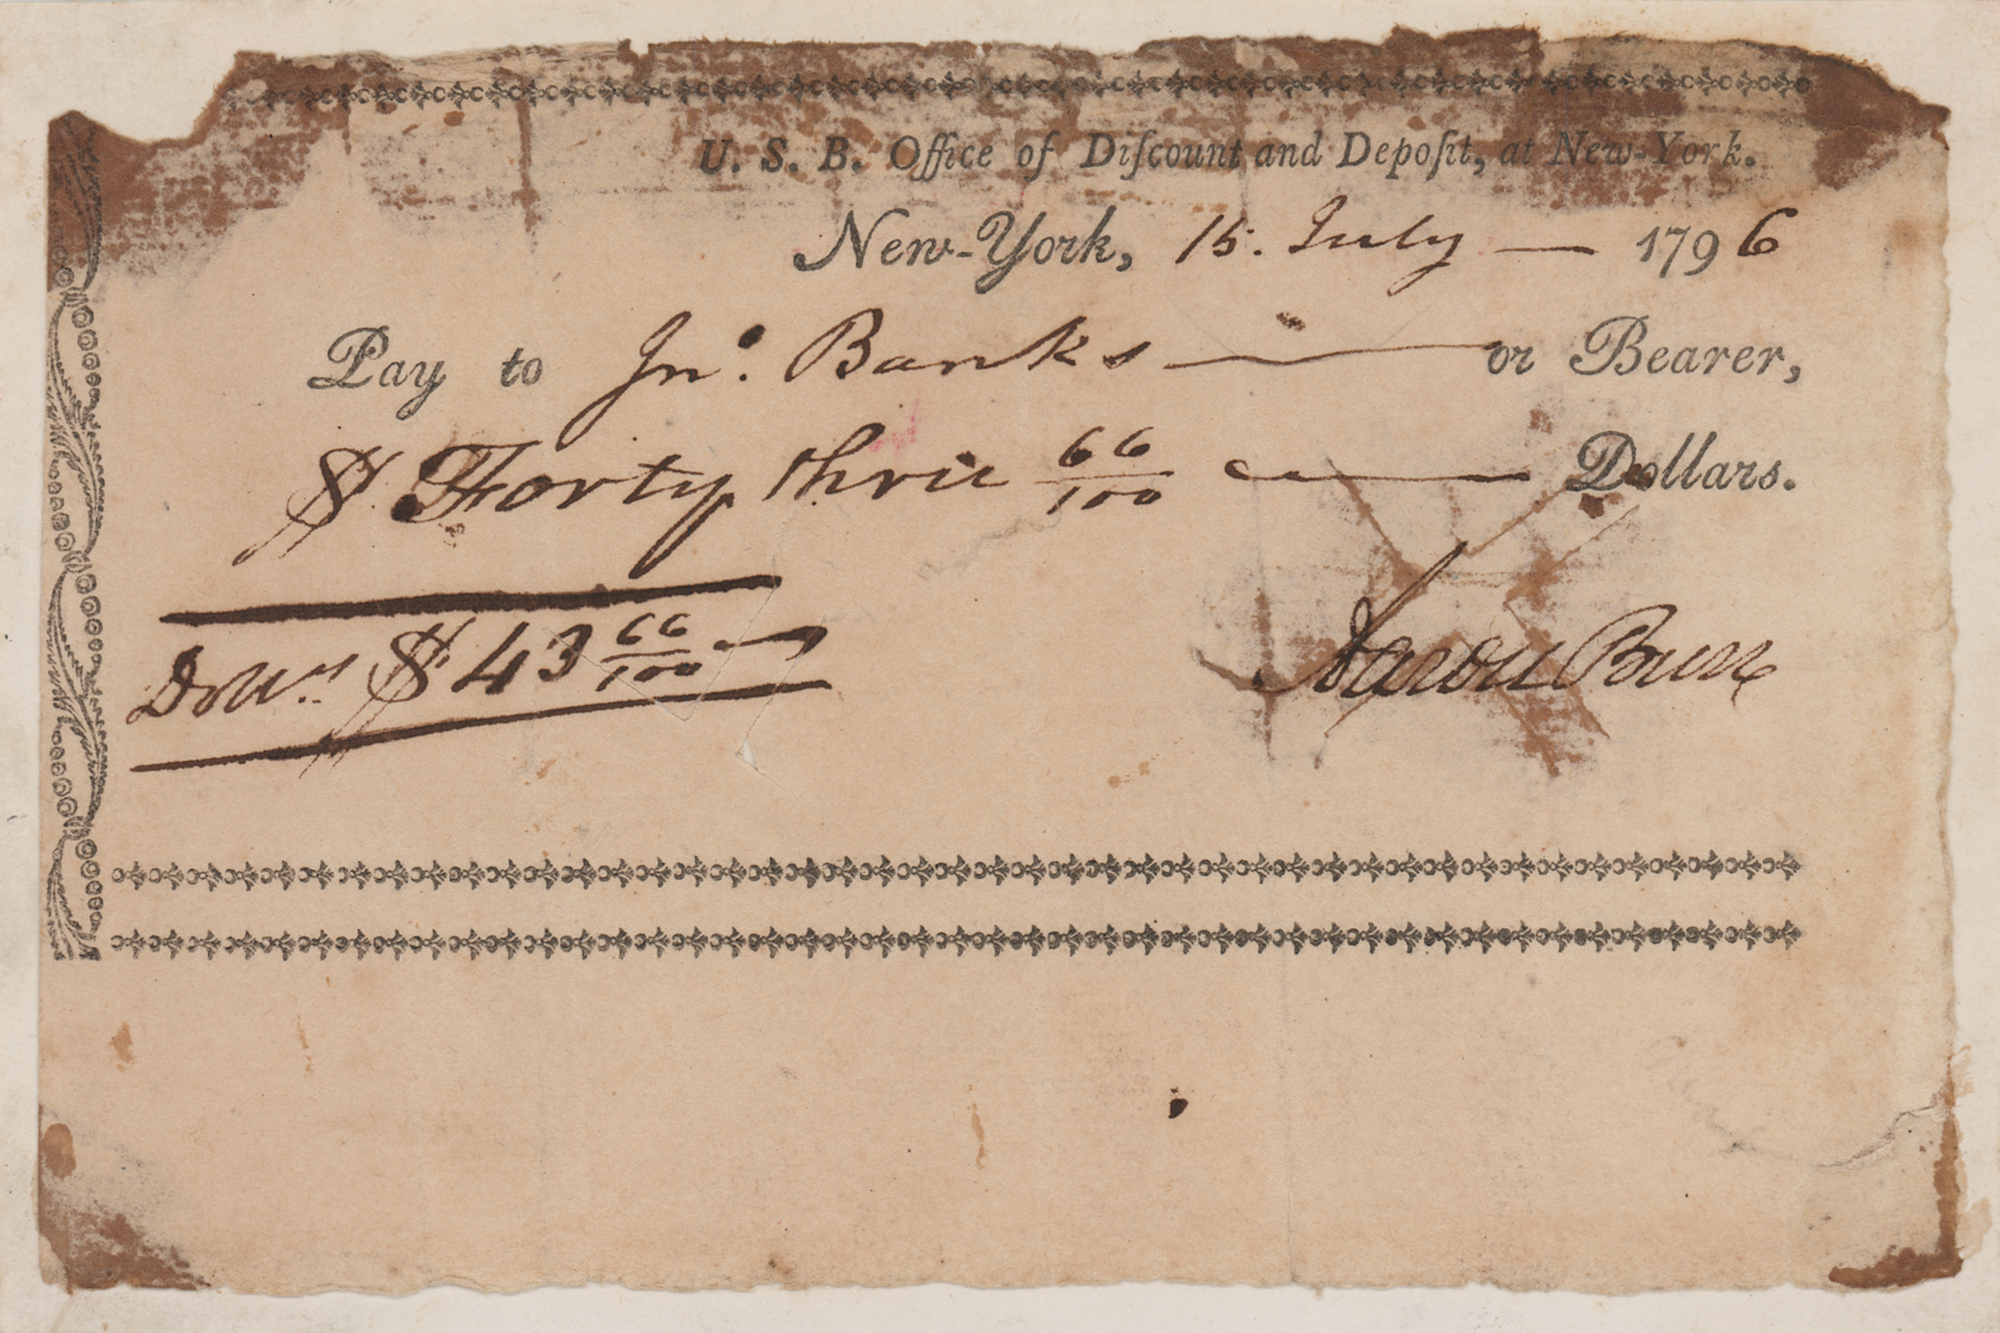 U. S. B. Office of Diſcount and Depoſit, at New-York.
New-York, 15. July — 1796
Pay to Jnº. Banks — or Bearer,
$ Forty three 66/100 — Dollars.
Dollrs $ 43 66/100
Aaron Burr